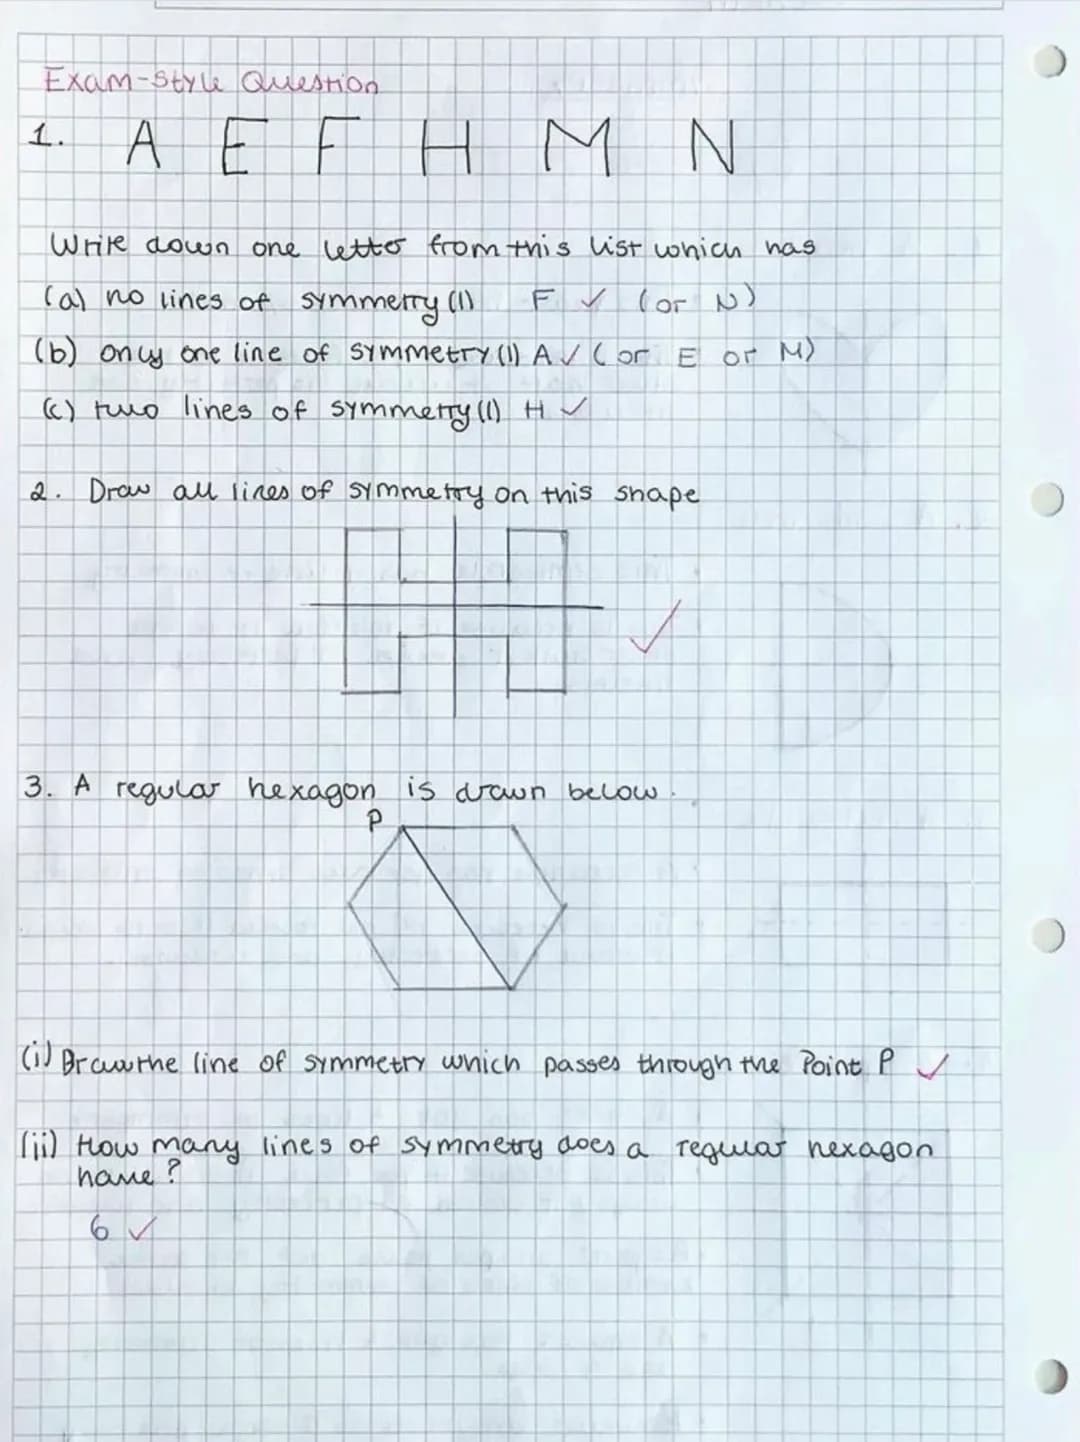 Exam-Style Question
1. A E F H M N
Write down one letter from this list which has
(a) no lines of symmetry (1) F ✓ (or N)
(b) only one line of symmetry (1) A ✓ (or E or M)
(c) two lines of symmetry (1) H ✓
2. Draw all lines of symmetry on this shape
✓
3. A regular hexagon is drawn below.
P
(i) Draw the line of symmetry which passes through the Point P ✓
(ii) How many lines of symmetry does a regular hexagon
have?
6 ✓